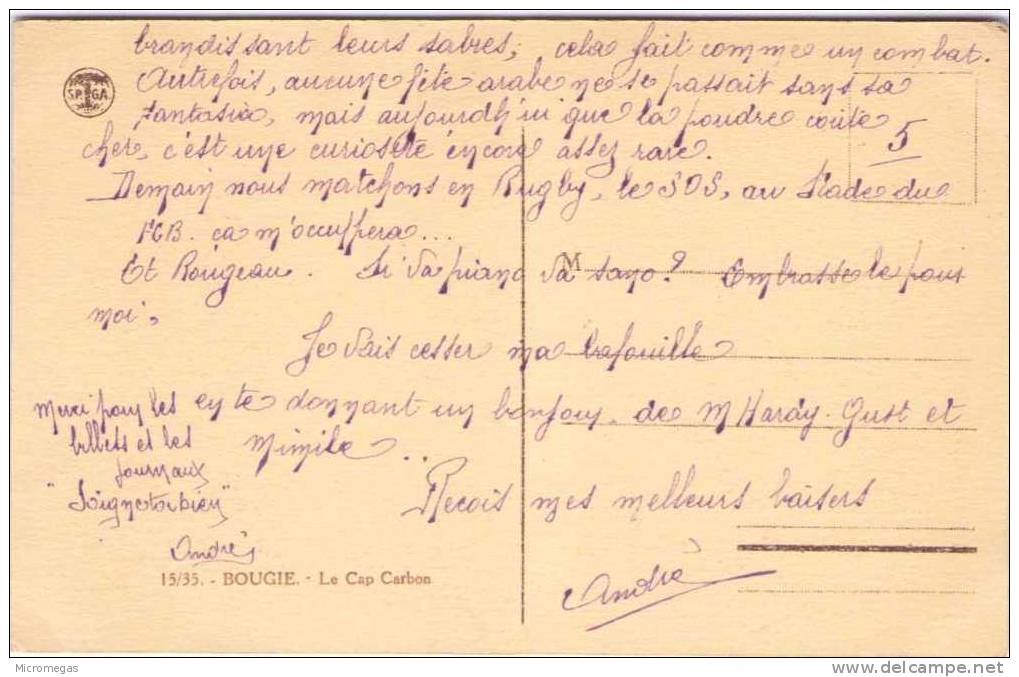 brandissant leurs sabres, cela fait comme un combat.
Autrefois, aucune fête arabe ne se passait sans sa
fantasia, mais aujourdh'ui que la poudre coûte
cher, c'est une curiosité encore assez rare.
Demain nous matchons en Rugby, le SOS, au Stade du
FCB. ca m'occuppera...
Et Rougeau. Si va piano va sano? Embrasse le pour
moi.
Je vais cesser ma bafouille
en te donnant un bonjour de M Hardy. Gust et
Mimile..
Recois mes meilleurs baisers
André
Merci pour les
billets et les
journaux
"Soigne toi bien"
André
5
SP. GA
M
15/35. - BOUGIE. - Le Cap Carbon
Micromegas
delcampe.net